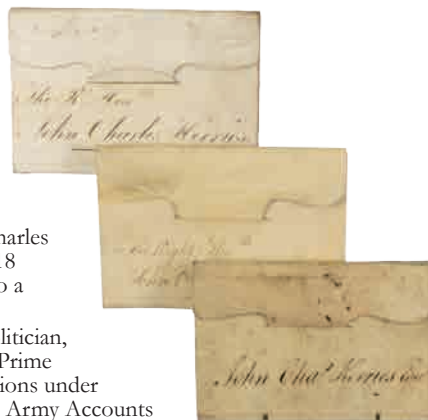 The Rt Hon
John Charles Herries
John
John Chas Herries Esq
harles
18
o a
litician,
Prime
ions under
Army Accounts